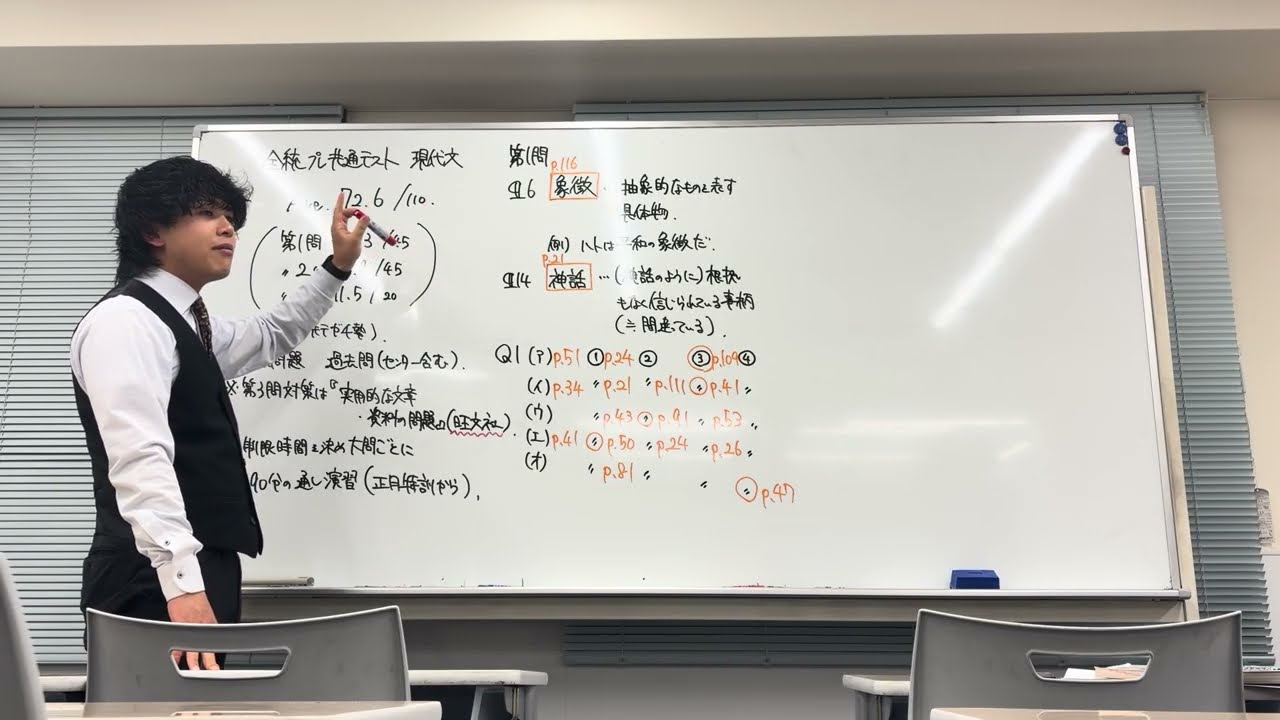 全統プレ共通テスト 現代文
72.6/110.
第1問 3/45
〃2 /45
1.5/20
問題 過去問(センター含む).
※第3問対策は『実用的な文章
・資料の問題』(旺文社).
制限時間を決め大問ごとに
90分の通し演習(正月特訓から).
第1問
p.116
Q16 象徴‥抽象的なものを表す
具体物.
例)ハトは平和の象徴だ.
p.21
神話…(神話のように)根拠
もなく信じられている事柄
(≒間違っている).
Q1(ア)p.51 ①p.24 ② ③p.109④
(イ)p.34 〃p.21 〃p.111〃p.41〃
(ウ) 〃p.43〃p.91〃p.53〃
(エ)p.41〃p.50〃p.24〃p.26〃
(オ) 〃p.81〃 〃 〃p.47